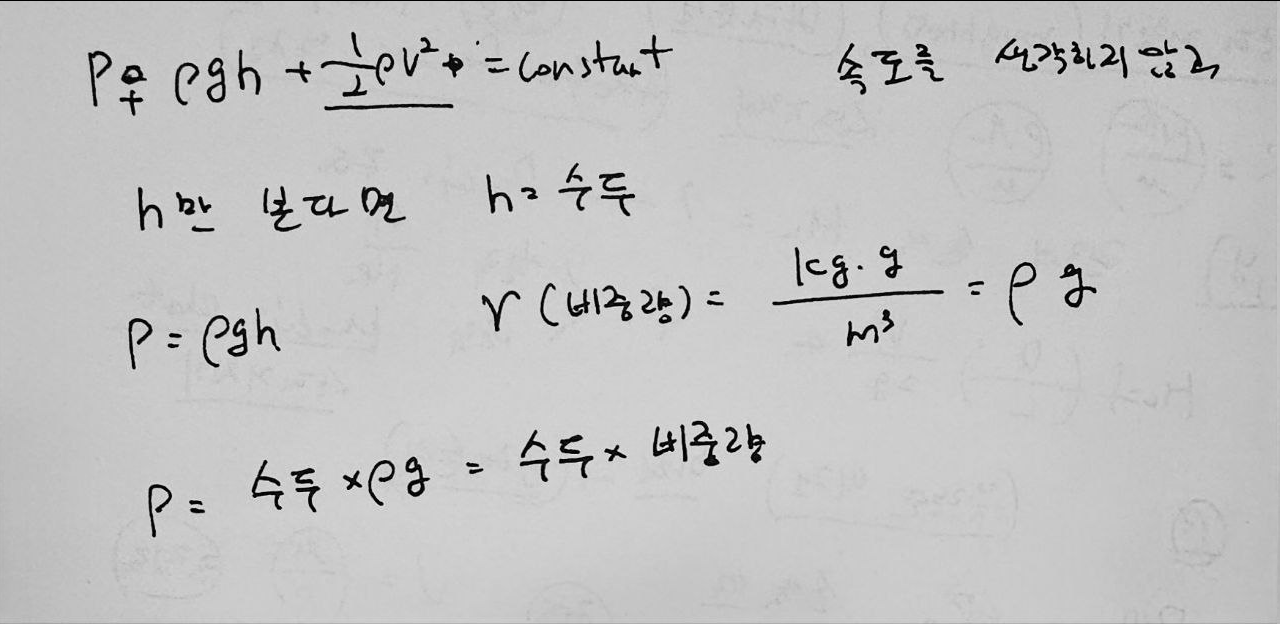 P + ρgh + 1/2 ρv² = constant 속도를 생각하지 않고
h만 본다면 h = 수두
P = ρgh γ (비중량) = kg·g / m³ = ρg
P = 수두 × ρg = 수두 × 비중량